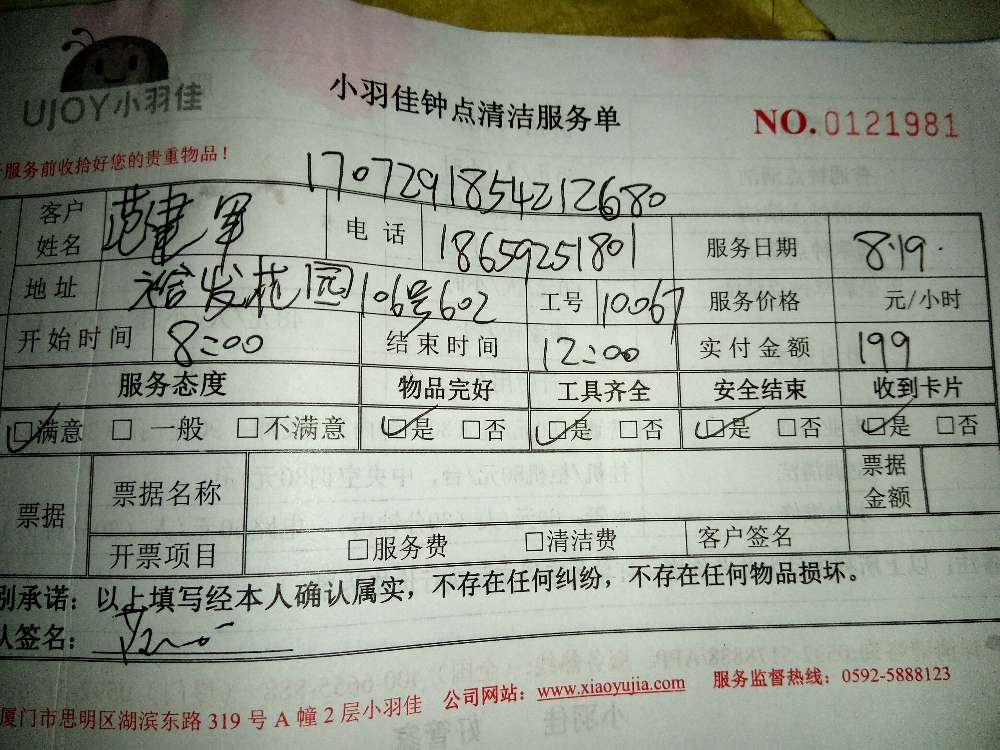 UJOY小羽佳
小羽佳钟点清洁服务单
NO.0121981
服务前收拾好您的贵重物品!
170729185421２680
客户姓名 范建军 电话 18659251801 服务日期 8.19.
地址 裕发花园106号602 工号 10067 服务价格 元/小时
开始时间 8:00 结束时间 12:00 实付金额 199
服务态度 物品完好 工具齐全 安全结束 收到卡片
☑满意 □一般 □不满意 ☑是 □否 ☑是 □否 ☑是 □否 ☑是 □否
票据 票据名称 票据金额
开票项目 □服务费 □清洁费 客户签名
别承诺：以上填写经本人确认属实，不存在任何纠纷，不存在任何物品损坏。
人签名：
厦门市思明区湖滨东路319号A幢2层小羽佳 公司网站：www.xiaoyujia.com 服务监督热线：0592-5888123